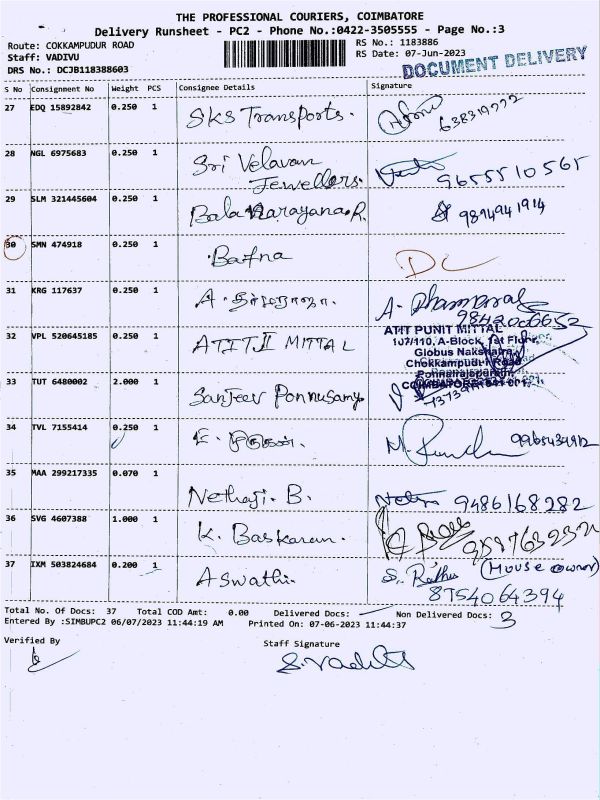 THE PROFESSIONAL COURIERS, COIMBATORE
Delivery Runsheet - PC2 - Phone No.:0422-3505555 - Page No.:3
Route: COKKAMPUDUR ROAD
RS No.: 1183886
Staff: VADIVU
RS Date: 07-Jun-2023
DRS No.: DCJB118388603
DOCUMENT DELIVERY
S No Consignment No Weight PCS Consignee Details Signature
27 EDQ 15892842 0.250 1 SKS Transports.
28 NGL 6975683 0.250 1 Sri Velavan
Jewellors. 9655510565
29 SLM 321445604 0.250 1 Bala Narayana.R. 9894941914
30 SMN 474918 0.250 1 Bafna DC
31 KRG 117637 0.250 1 A. தர்மராஜா. A. Dhamaraj
9842006652
32 VPL 520645185 0.250 1 ATIT MITTAL
ATIT PUNIT MITTAL
107/110, A-Block, 1st Floor,
Globus Nakshatra,
Chokkampudur Road
33 TUT 6480002 2.000 1 Sanjeev Ponnusamy
34 TVL 7155414 0.250 1 E.
35 MAA 299217335 0.070 1 Nethaji. B. 9486168282
36 SVG 4607388 1.000 1 K. Baskaran.
37 IXM 503824684 0.200 1 Aswathi. S. (House owner)
8754064394
Total No. Of Docs: 37 Total COD Amt: 0.00 Delivered Docs: Non Delivered Docs: 3
Entered By :SIMBUPC2 06/07/2023 11:44:19 AM Printed On: 07-06-2023 11:44:37
Verified By
Staff Signature